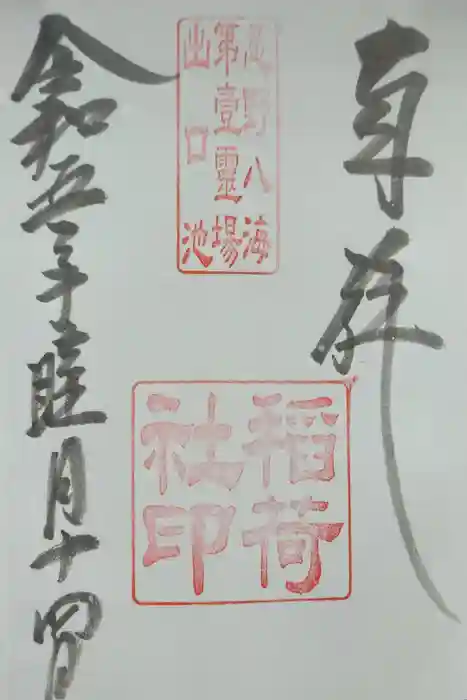 奉拝
忍野八海
第壹霊場
出口池
稲荷
社印
令和五年睦月十四日